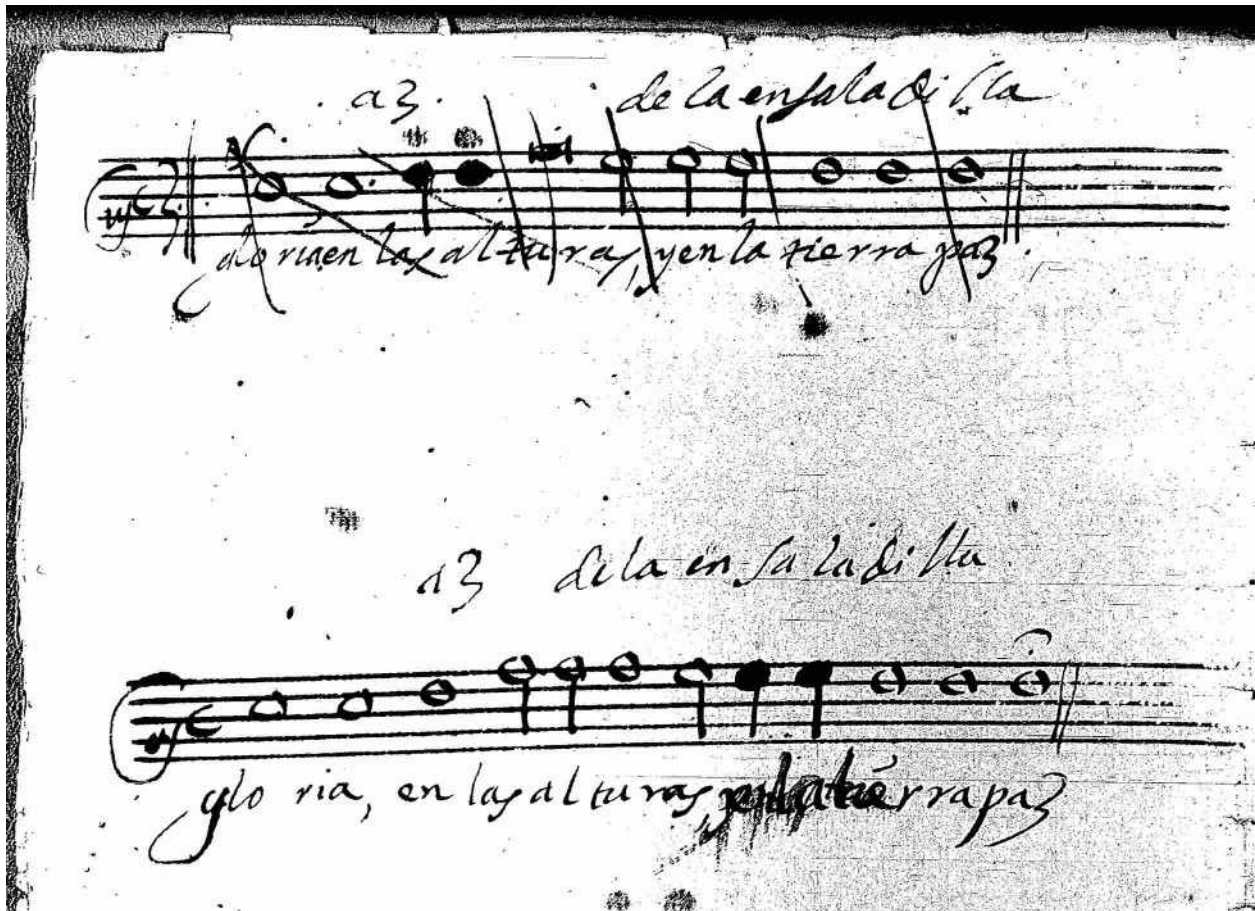 a 3. de la ensaladilla
gloria en las alturas, y en la tierra paz
a 3 de la ensaladilla
gloria, en las alturas, y en la tierra paz